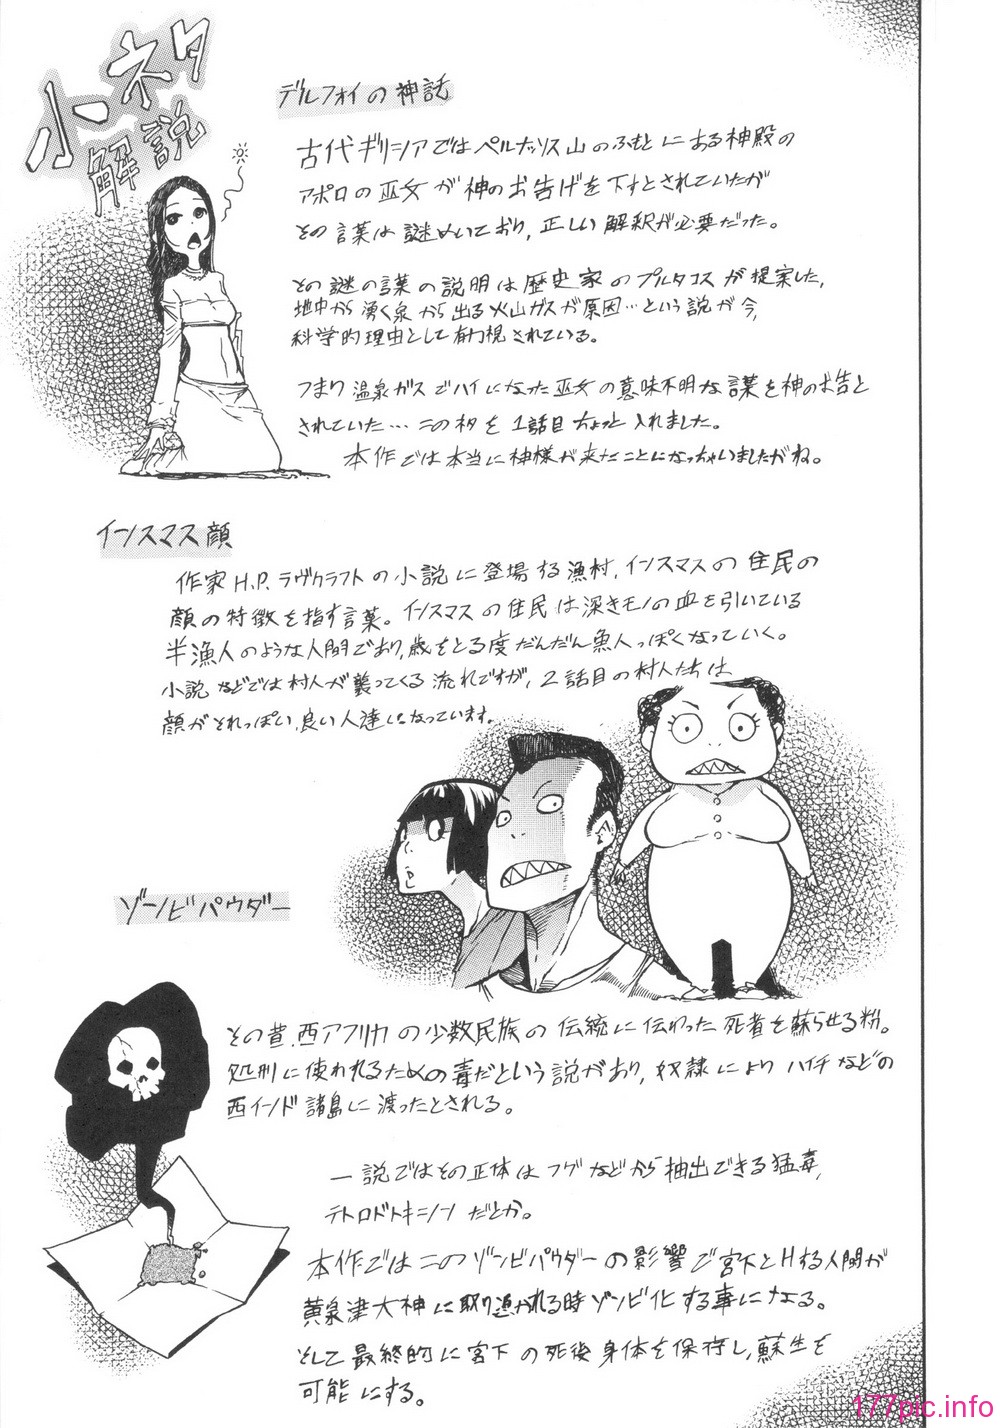 小ネタ
解説
デルフォイの神話
古代ギリシアではペルナッソス山のふもとにある神殿の
アポロの巫女が神のお告げを下すとされていたが
その言葉は謎めいており、正しい解釈が必要だった。
その謎の言葉の説明は歴史家のプルタコスが提案した、
地中から湧く泉から出る火山ガスが原因…という説が今、
科学的理由として有力視されている。
つまり温泉ガスでハイになった巫女の意味不明な言葉を神のお告と
されていた…このネタを1話目ちょっと入れました。
本作では本当に神様が来たことになっちゃいましたがね。
インスマス顔
作家H.P.ラヴクラフトの小説に登場する漁村、インスマスの住民の
顔の特徴を指す言葉。インスマスの住民は深きモノの血を引いている
半漁人のような人間であり、歳をとる度だんだん魚人っぽくなっていく。
小説などでは村人が襲ってくる流れですが、2話目の村人たちは
顔がそれっぽい、良い人達になっています。
ゾンビパウダー
その昔、西アフリカの少数民族の伝統に伝わった死者を蘇らせる粉。
処刑に使われるための毒だという説があり、奴隷によりハイチなどの
西インド諸島に渡ったとされる。
一説ではその正体はフグなどから抽出できる猛毒、
テトロドトキシンだとか。
本作ではこのゾンビパウダーの影響で宮下とHする人間が
黄泉津大神に取り憑かれる時ゾンビ化する事になる。
そして最終的に宮下の死後身体を保存し、蘇生を
可能にする。
177pic.info